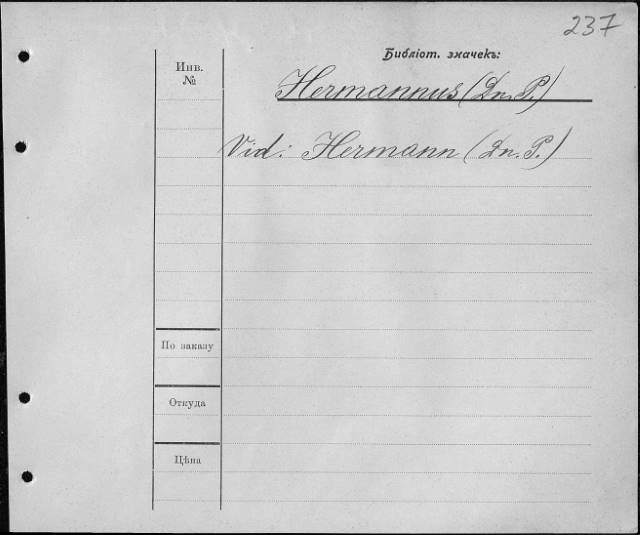 237
Библіот. значекъ:
Инв.
№
Hermannus (Dn. P.)
Vid: Hermann (Dn. P.)
По заказу
Откуда
Цѣна